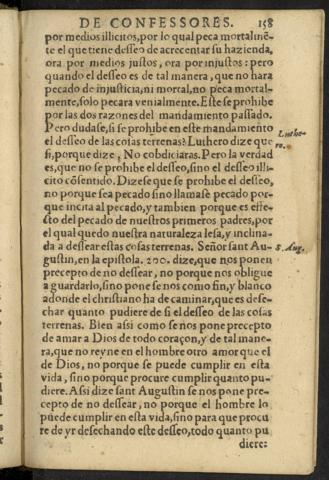 DE CONFESSORES. 158
por medios illicitos, por lo qual peca mortalmẽ-
te el que tiene desseo de acrecentar su hazienda,
ora por medios justos, ora por injustos: pero
quando el desseo es de tal manera, que no hara
pecado de injusticia, ni mortal, no peca mortal-
mente, solo pecara venialmente. Este se prohibe
por las dos razones del mandamiento passado.
Pero dudase, si se prohibe en este mandamiento
el desseo de las cosas terrenas? Luthero dize que
si, porque dize, No cobdiciaras. Pero la verdad
es, que no se prohibe el desseo, sino el desseo illi-
cito cõsentido. Dizese que se prohibe el desseo,
no porque sea pecado sino llamase pecado por-
que incita al pecado, y tambien porque es effe-
cto del pecado de nuestros primeros padres, por
el qual quedo nuestra naturaleza lesa, y inclina-
da a dessear estas cosas terrenas. Señor sant Au-
gustin, en la epistola. 200. dize, que nos ponen
precepto de no dessear, no porque nos obligue
a guardarlo, sino pone se nos como fin, y blanco
adonde el christiano ha de caminar, que es dese-
char quanto pudiere de si el desseo de las cosas
terrenas. Bien assi como se nos pone precepto
de amar a Dios de todo coraçon, y de tal mane-
ra, que no reyne en el hombre otro amor que el
de Dios, no porque se puede cumplir en esta
vida, sino porque procure cumplir quanto pu-
diere. Assi dize sant Augustin se nos pone pre-
cepto de no dessear, no porque el hombre lo
puede cumplir en esta vida, sino para que procu
re de yr desechando este desseo, todo quanto pu
diere:
Luthe-
ro.
S. Aug.